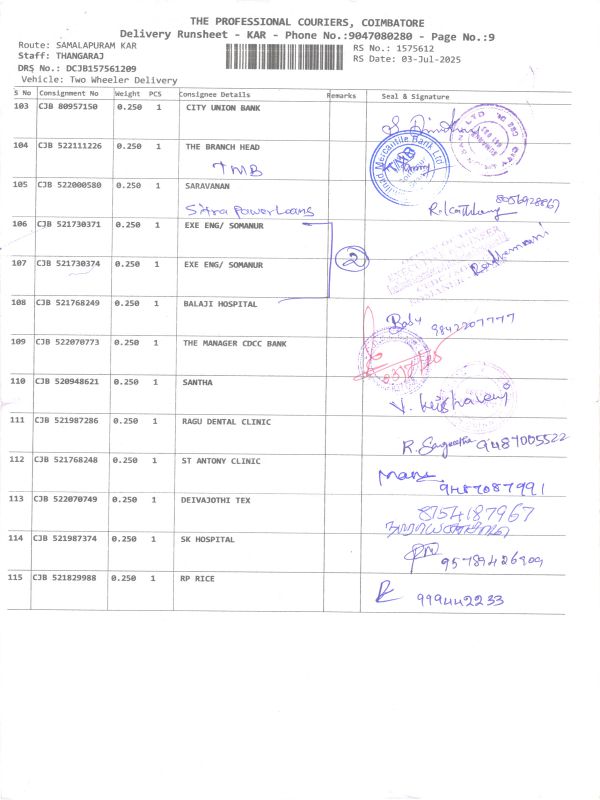 THE PROFESSIONAL COURIERS, COIMBATORE
Delivery Runsheet - KAR - Phone No.:9047080280 - Page No.:9
Route: SAMALAPURAM KAR
RS No.: 1575612
Staff: THANGARAJ
RS Date: 03-Jul-2025
DRS No.: DCJB157561209
Vehicle: Two Wheeler Delivery
S No Consignment No Weight PCS Consignee Details Remarks Seal & Signature
103 CJB 80957150 0.250 1 CITY UNION BANK
104 CJB 522111226 0.250 1 THE BRANCH HEAD
TMB
105 CJB 522000580 0.250 1 SARAVANAN
Sitra Power Looms 8056928867
106 CJB 521730371 0.250 1 EXE ENG/ SOMANUR
2
107 CJB 521730374 0.250 1 EXE ENG/ SOMANUR
108 CJB 521768249 0.250 1 BALAJI HOSPITAL
Babu 9842207777
109 CJB 522070773 0.250 1 THE MANAGER CDCC BANK
110 CJB 520948621 0.250 1 SANTHA
111 CJB 521987286 0.250 1 RAGU DENTAL CLINIC
R. Sangeetha 9487005522
112 CJB 521768248 0.250 1 ST ANTONY CLINIC
9487087991
113 CJB 522070749 0.250 1 DEIVAJOTHI TEX
8754187967
114 CJB 521987374 0.250 1 SK HOSPITAL
95789426909
115 CJB 521829988 0.250 1 RP RICE
999442233